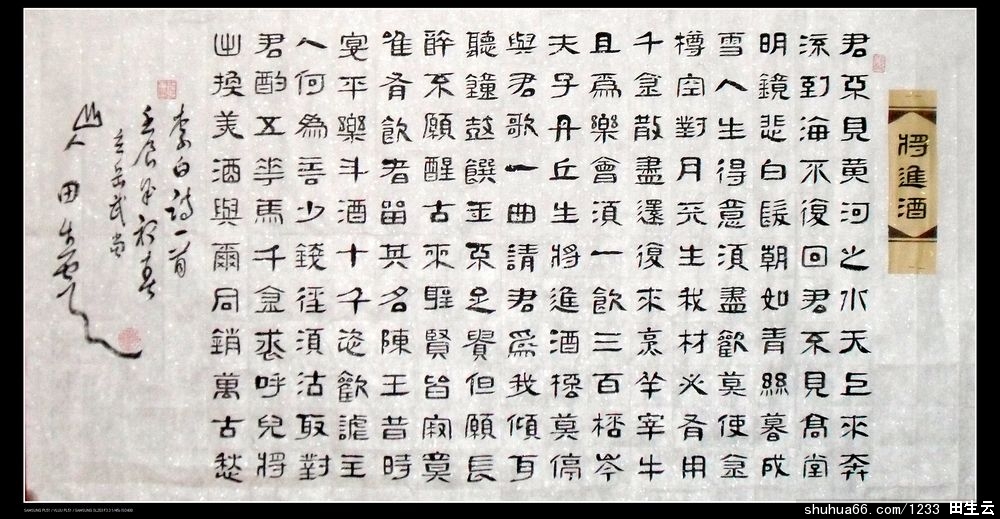 將進酒
君不見黄河之水天上來奔
流到海不復回君不見高堂
明鏡悲白髮朝如青絲暮成
雪人生得意須盡歡莫使金
樽空對月天生我材必有用
千金散盡還復來烹羊宰牛
且為樂會須一飲三百桮岑
夫子丹丘生將進酒桮莫停
與君歌一曲請君為我傾耳
聽鐘鼓饌玉不足貴但願長
醉不願醒古來聖賢皆寂寞
惟有飲者留其名陳王昔時
宴平樂斗酒十千恣歡謔主
人何為言少錢徑須沽取對
君酌五花馬千金裘呼兒將
出換美酒與爾同銷萬古愁
李白詩一首
壬辰年初春
玄岳武當
山人田生雲
shuhua66.com/1233 田生云